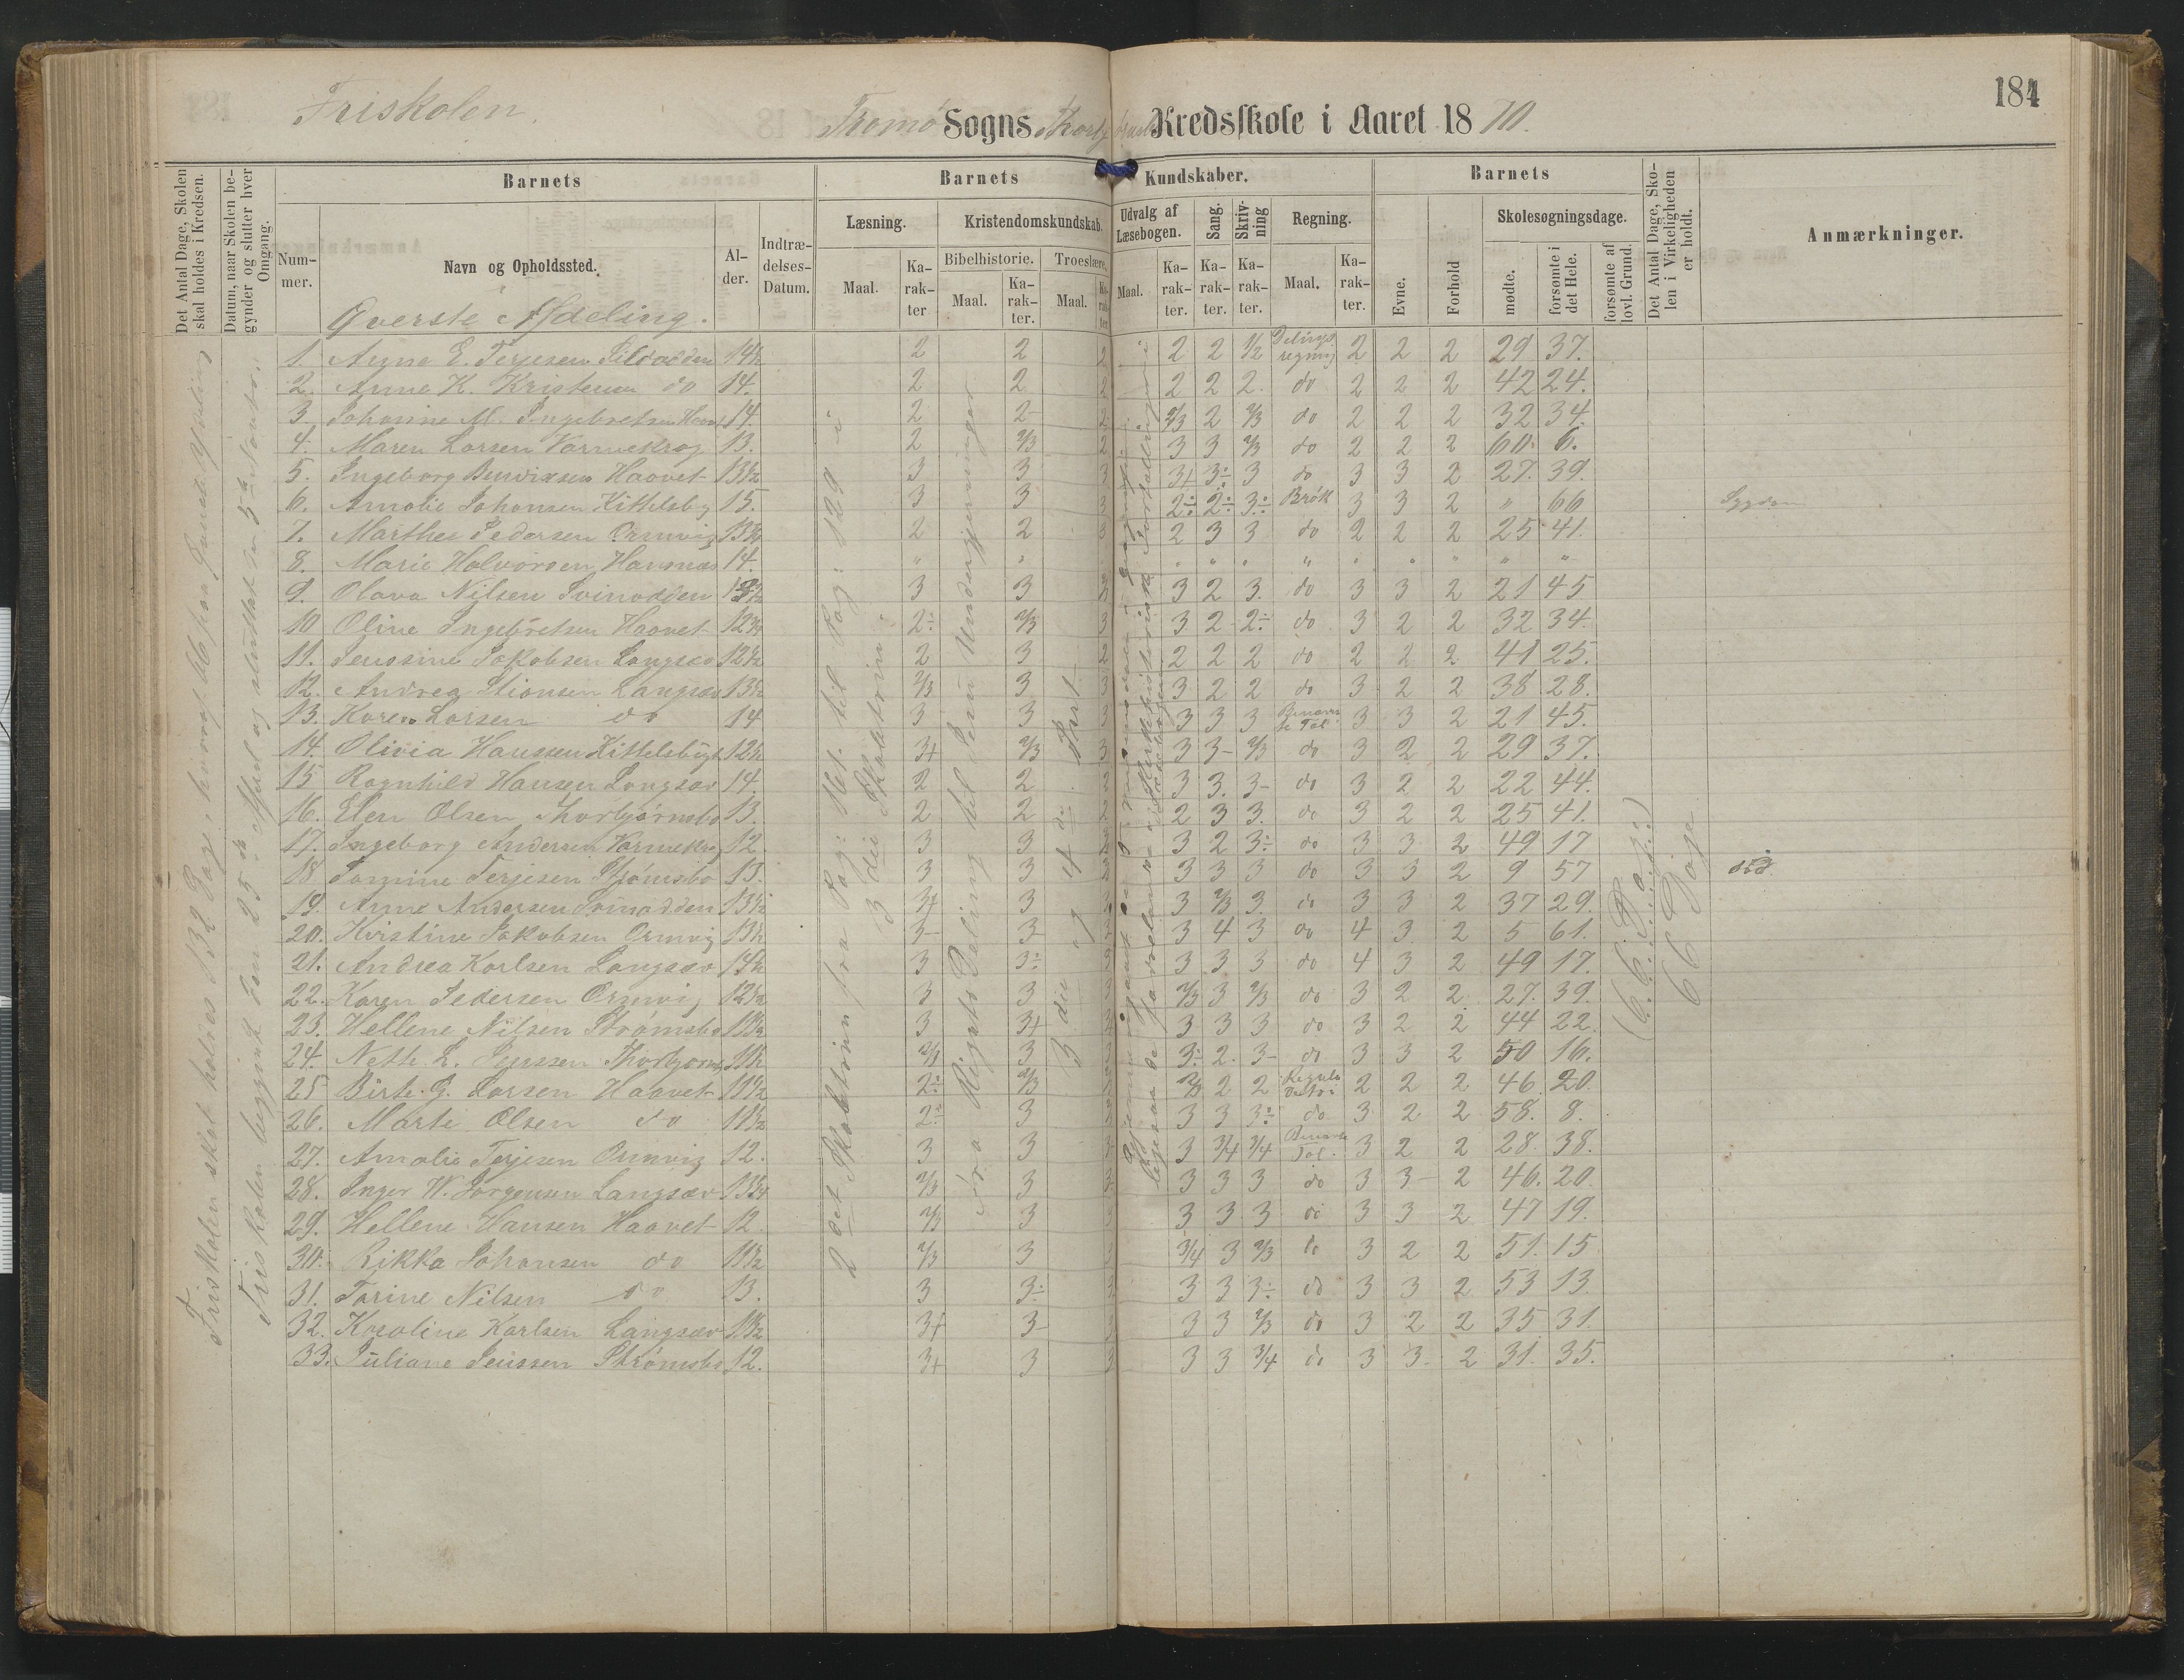 184
Friskolen.
Tromø Sogns Kredsskole i Aaret 1870.
Det Antal Dage, Skolen skal holdes i Kredsen.
Datum, naar Skolen begynder og slutter hver Omgang.
Barnets
Barnets Kundskaber.
Barnets
Det Antal Dage, Skolen i Virkeligheden er holdt.
Anmærkninger.
Nummer.
Navn og Opholdssted.
Alder.
Indtrædelses-Datum.
Læsning.
Kristendomskundskab.
Udvalg af Læsebogen.
Sang.
Skrivning
Regning.
Evne.
Forhold
Skolesøgningsdage.
Maal.
Karakter
Bibelhistorie.
Troeslære.
mødte.
forsømte i det Hele.
forsømte af lovl. Grund.
Øverste Afdeling.
1. E. Terjesen 14½ 2 2 2 2 2 ½ Delings regning 2 2 2 29 37.
2. Anne K. Kristensen do 14. 2 2 2 2 2 2. do 2 2 2 42 24.
3. Johanne M. Ingebretsen 14. 2 2- 2 2/3 2 2/3 do 2 2 2 32 34.
4. Maren Larsen Varmekrog 13. 2 2/3 2 3 3 2/3 do 2 2 2 60. 6.
5. Ingeborg Bendixsen Haavet 13½ 3 3 3 3+ 3÷ 3 do 3 3 2 27. 39.
6. Amalie Johansen Kittelsby 15. 3 3 3 2÷ 2÷ 3÷ Brøk 3 3 2 " 66 Sygdom
7. Marthea Pedersen Ormvig 13¾ 2 2 3 2 3 3 do 2 2 2 25 41.
8. Marie Halvorsen 14. " " " " " " " " " " "
9. Olava Nilsen Svinodden 3 3 3 2 3. do 3 3 2 21 45
10 Oline Ingebretsen Haavet 12¾ 2÷ 2/3 3 3 2 2÷ do 3 2 2 32 34.
11. Jensine Jakobsen Langsæ 12½ 2 3 2 2 2 2 do 2 2 2 41 25.
12. Andrea Stiansen Langsæv 13½ 2/3 3 3 3 2 2 do 3 2 2 38 28.
13. Karen Larsen do 14 3 3 3 3 3 3 Benævnte Tal 3 3 2 21 45.
14. Olivia Hanssen Kittelsbugt 12½ 3+ 2/3 3 3 3- 2/3 do 3 2 2 29 37.
15 Ragnhild Hansen Langsæv 14. 2 2 2 3 3. 3- do 3 2 2 22 44.
16. Elen Olsen Thorbjørnsbo 13. 2 2 2 2 3 3. do 3 2 2 25 41.
17. Ingeborg Andersen Varmekrog 12. 3 3 3 2 3÷ do 3 3 2 49 17
18 Tomine Terjesen Strømsbo 13. 3 3 3 3 3 3 do 3 3 2 9 57 død
19. Anne Andersen Svinodden 13½ 3+ 3 3 3 2/3 3. do 3 3 2 37 29.
20. Kristine Jakobsen Ormvig 13½ 3- 3- 3 4 3 do 4 3 2 5 61.
21. Andrea Karlsen Langsæv 14½ 3 3÷ 3 3 3 3 do 4 3 2 49 17.
22. Karen Pedersen Ormvig 12½ 3 3 3 2/3 3 2/3 do 3 2 2 27. 39.
23. Hellene Nilsen Strømsbo 11½ 3 3+ 3 3 3 do 3 2 2 44 22.
24. L. Jenssen Thorbjørnsbo 11½ 2/3 3 3 3÷ 2. 3- do 3 3 2 50 16.
25 Birte G. Larsen Haavet 11½ 2÷ 2/3 2/3 2 2 Regula Detri 2 2 2 46 20.
26. Marte Olsen do 11½ 2÷ 3 3 3 3÷ do 3 2 2 58. 8.
27. Amalie Terjesen Ormvig 12. 3 3 3 3 3/4 3/4 Benævnte Tal. 3 2 2 28. 38.
28. Inger W. Jørgensen Langsæv 13¾ 2/3 3 3 3 3 do 3 3- 2 46. 20.
29. Hellene Hansen Haavet 12 2/3 3 3 3 3 3 do 3 3 2 47 19.
30. Rikka Johansen do 11½ 2/3 3 3 3/4 3 2/3 do 3 2 2 51. 15
31. Tarine Nilsen do 13. 3 3÷ 3 3 3 3÷ do 3 3 2 53 13.
32. Karoline Karlsen Langsæv 11½ 3+ 3- 3 3 3 2/3 do 3 2 2 35 31.
33. Juliane Jenssen Strømsbo 12. 3+ 3 3 3 3 3/4 do 3 3 2 31. 35.
Friskolen skal holdes i 132 Dage, hvoraf 66 paa hver Afdeling
Friskolen begyndt den 25de og sluttet den 5te
2det Skoletrin fra Pag: 161. til Pag: 129 i 3die Skoletrin.
fra Rigets Deling til Jesu Undergjerninger
3die og 4de Part.
(66 Dage)
66 Dage